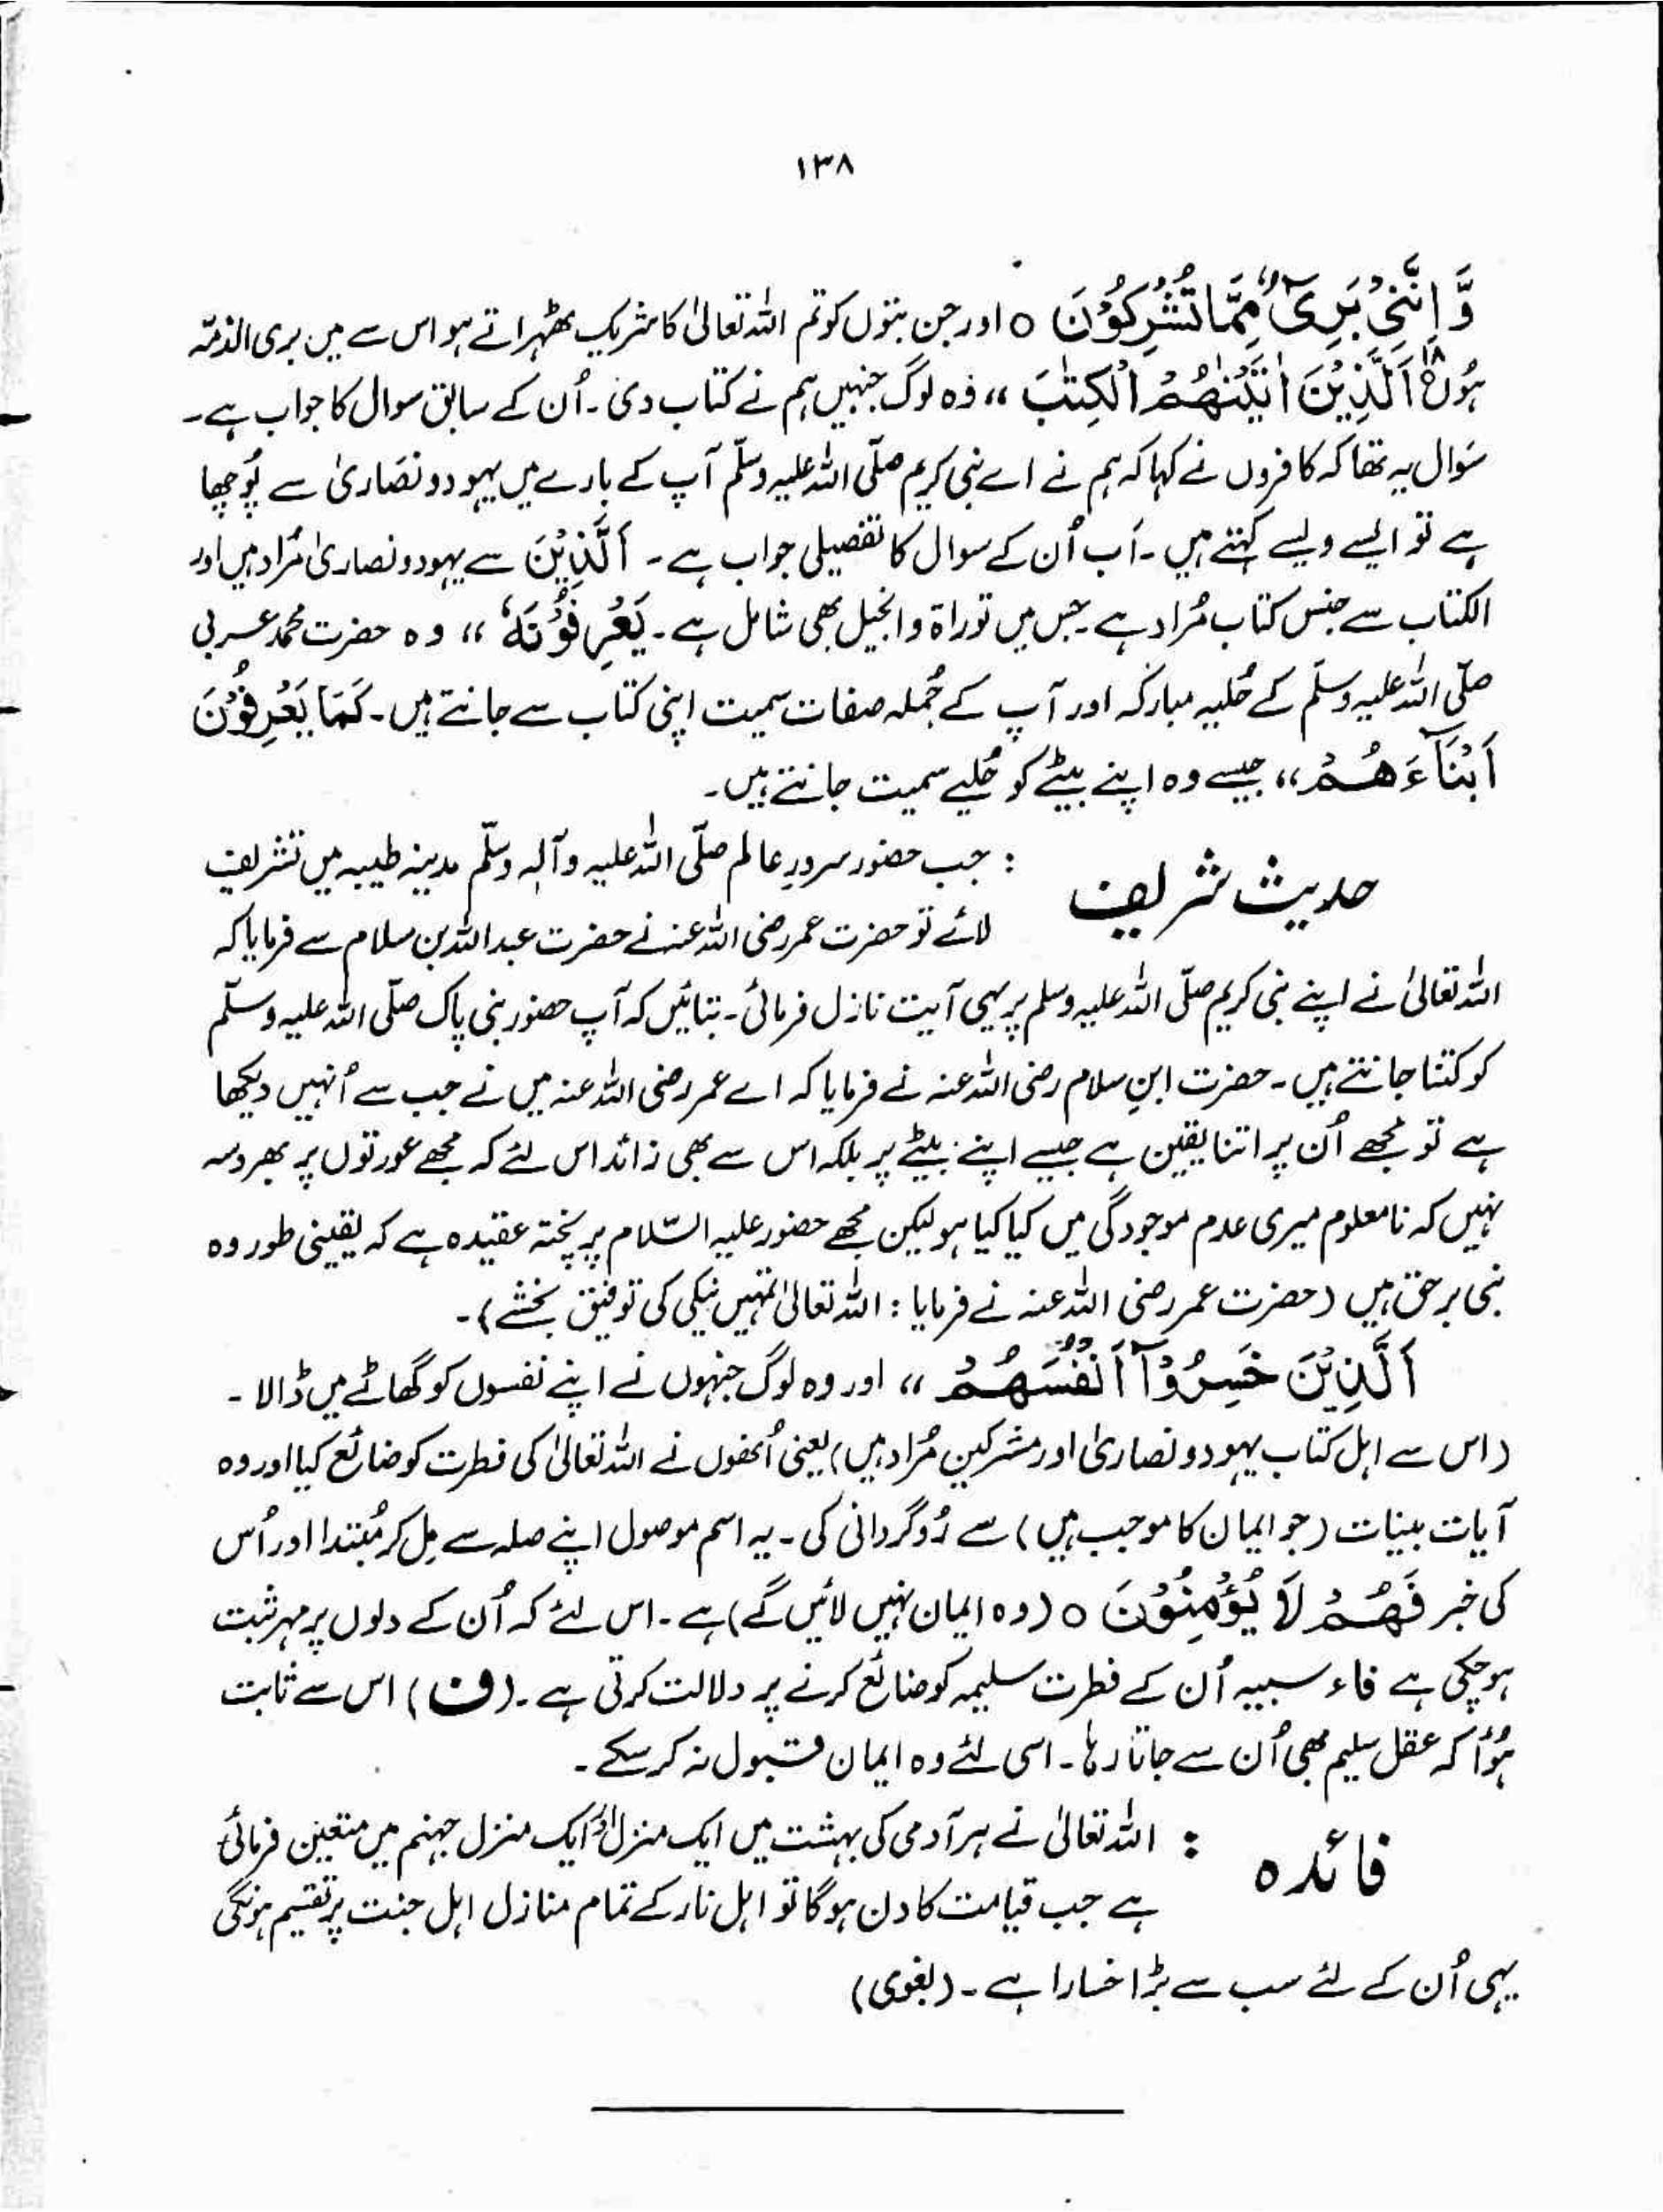 ۱۳۸
وَّ اِنَّنِیْ بَرِیْٓءٌ مِّمَّا تُشْرِکُوْنَ ○ اور جن بتوں کو تم اللہ تعالیٰ کا شریک ٹھہراتے ہو اس سے میں بری الذمّہ
ہُوں ۱۸ اَلَّذِیْنَ اٰتَیْنٰھُمُ الْکِتٰبَ ،، وہ لوگ جنہیں ہم نے کتاب دی ۔ اُن کے سابق سوال کا جواب ہے ۔
سَوال یہ تھا کہ کافروں نے کہا کہ ہم نے اے نبی کریم صلّی اللہ علیہ وسلّم آپ کے بارے میں یہود و نصَاریٰ سے پُوچھا
ہے تو ایسے ویسے کہتے ہیں ۔ اَب اُن کے سوال کا تفصیلی جواب ہے ۔ اَلَّذِیْنَ سے یہود و نصاریٰ مُراد ہیں اور
الکتاب سے جنس کتاب مُراد ہے جس میں توراۃ و انجیل بھی شامل ہے ۔ یَعْرِفُوْنَہٗ ،، وہ حضرت محمد عربی
صلّی اللہ علیہ وسلّم کے حُلیہ مبارکہ اور آپ کے جُملہ صفات سمیت اپنی کتاب سے جانتے ہیں ۔ کَمَا یَعْرِفُوْنَ
اَبْنَآءَھُمْ ،، جیسے وہ اپنے بیٹے کو حُلیے سمیت جانتے ہیں ۔
حدیث شریف : جب حضور سرورِ عالم صلّی اللہ علیہ وآلہ وسلّم مدینہ طیبہ میں تشریف
لائے تو حضرت عمر رضی اللہ عنہ نے حضرت عبداللہ بن سلام سے فرمایا کہ
اللہ تعالیٰ نے اپنے نبی کریم صلّی اللہ علیہ وسلم پر یہی آیت نازل فرمائی ۔ بتائیں کہ آپ حضور نبی پاک صلّی اللہ علیہ وسلّم
کو کتنا جانتے ہیں ۔ حضرت ابنِ سلام رضی اللہ عنہ نے فرمایا کہ اے عمر رضی اللہ عنہ میں نے جب سے اُنہیں دیکھا
ہے تو مجھے اُن پر اتنا یقین ہے جیسے اپنے بیٹے پر بلکہ اس سے بھی زائد اس لئے کہ مجھے عورتوں پر بھروسہ
نہیں کہ نامعلوم میری عدم موجودگی میں کیا کیا ہو لیکن مجھے حضور علیہ السّلام پر پختہ عقیدہ ہے کہ یقینی طور وہ
نبی برحق ہیں (حضرت عمر رضی اللہ عنہ نے فرمایا : اللہ تعالیٰ تمہیں نیکی کی توفیق بخشے) ۔
اَلَّذِیْنَ خَسِرُوْٓا اَنْفُسَھُمْ ،، اور وہ لوگ جنہوں نے اپنے نفسوں کو گھاٹے میں ڈالا ۔
(اس سے اہل کتاب یہود و نصاریٰ اور مشرکین مُراد ہیں) یعنی اُنھوں نے اللہ تعالیٰ کی فطرت کو ضائع کیا اور وہ
آیات بینات (جو ایمان کا موجب ہیں) سے رُوگردانی کی ۔ یہ اسم موصول اپنے صلہ سے مِل کر مُبتدا اور اُس
کی خبر فَھُمْ لَا یُؤْمِنُوْنَ ○ (وہ ایمان نہیں لائیں گے) ہے ۔ اس لئے کہ اُن کے دلوں پر مہر ثبت
ہوچکی ہے فاء سببیہ اُن کے فطرت سلیمہ کو ضائع کرنے پر دلالت کرتی ہے ۔ (ف) اس سے ثابت
ہُوٗا کہ عقل سلیم بھی اُن سے جاتا رہا ۔ اسی لئے وہ ایمان قبول نہ کرسکے ۔
فائدہ : اللہ تعالیٰ نے ہر آدمی کی بہشت میں ایک منزل اور ایک منزل جہنم میں متعین فرمائی
ہے جب قیامت کا دن ہوگا تو اہل نار کے تمام منازل اہل جنت پر تقسیم ہونگی
یہی اُن کے لئے سب سے بڑا خسارا ہے ۔ (بغوی)